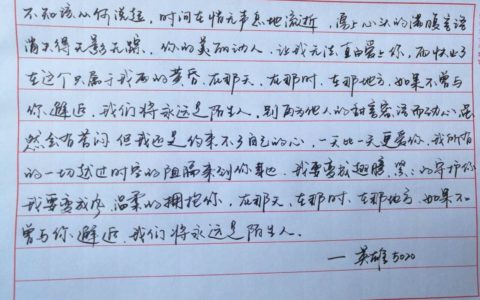 不知该从何说起，时间在悄无声息地流逝，涌上心头的满腹言语
消失得无影无踪。你的美丽动人，让我无法直白爱上你，而
在这个只属于我两的黄昏。在那天，在那时，在那地方，如果不曾与
你邂逅，我们将永远是陌生人，别再为他人的甜言蜜语而动心，虽
然会有苦闷但我还是约束不了自己的心，一天比一天更爱你，我所有
的一切越过时空的阻隔来到你身边。我要变成翅膀，紧紧的守护你
我要变成风，温柔的拥抱你，在那天，在那时，在那地方，如果不
曾与你邂逅，我们将永远是陌生人。
一英雄5020